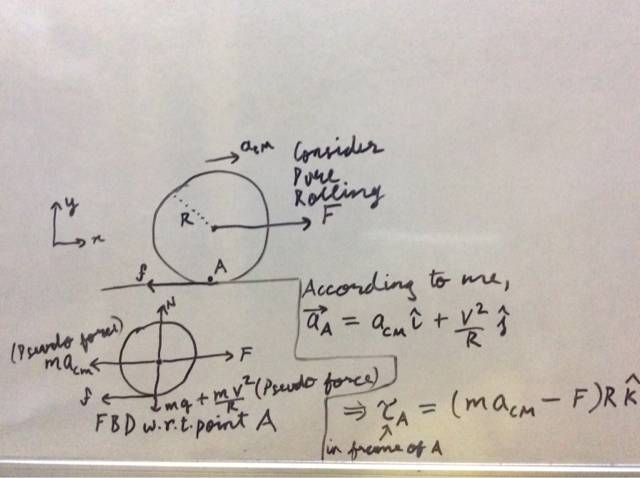 a_CM
Consider
Pure
Rolling
F
R
y
x
f
A
According to me,
a⃗_A = a_CM î + v²/R ĵ
N
(Pseudo force)
ma_CM
F
f
mg + mv²/R (Pseudo force)
FBD w.r.t. point A
⇒ τ_A = (ma_CM − F)R k̂
in frame of A